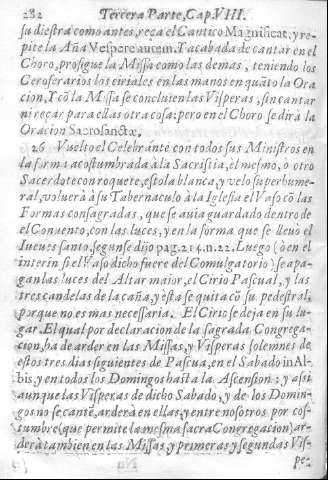 282 Tercera Parte, Cap. VIII.
su diestra como antes, reça el Cantico Magnificat, y re-
pite la Aña Vespere autem. Y acabada de cantar en el
Choro, prosigue la Missa como las demas, teniendo los
Ceroferarios los ciriales en las manos en quãto la Ora
cion, Y cõ la Missa se concluien las Visperas, sin cantar
ni reçar para ellas otra cosa: pero en el Choro se dirà la
Oracion Sacrosanctæ,
26 Vuelto el Celebrante con todos sus Ministros en
la forma acostumbrada à la Sacristia, èl mesmo, o otro
Sacerdote con roquete, estola blanca, y velo superhume-
ral, voluerà à su Tabernaculo à la Iglesia el Vaso cõ las
Formas consagradas, que se auia guardado dentro de
el Conuento, con las luces, y en la forma que se lleuò el
Iueues santo, segun se dijo pag. 214. n. 22. Luego (ò en el
interin si el Vaso dicho fuere del Comulgatorio) se apa-
gan las luces del Altar maior, el Cirio Pascual, y las
tres candelas de la caña, y èsta se quita cõ su pedestral,
porque no es mas necessaria. El Cirio se deja en su lu-
gar. El qual por declaracion de la sagrada Congrega-
cion, ha de arder en las Missas, y Visperas solemnes de
estos tres dias siguientes de Pascua, en el Sabado in Al-
bis, y en todos los Domingos hasta la Ascension: y assi
aunque las Visperas de dicho Sabado, y de los Domin-
gos no se cantē, arderà en ellas, y entre nosotros por cos-
tumbre (que permite la mesma sacra Congregacion) ar-
derà tambien en las Missas, y primeras y segundas Vis-
pe-